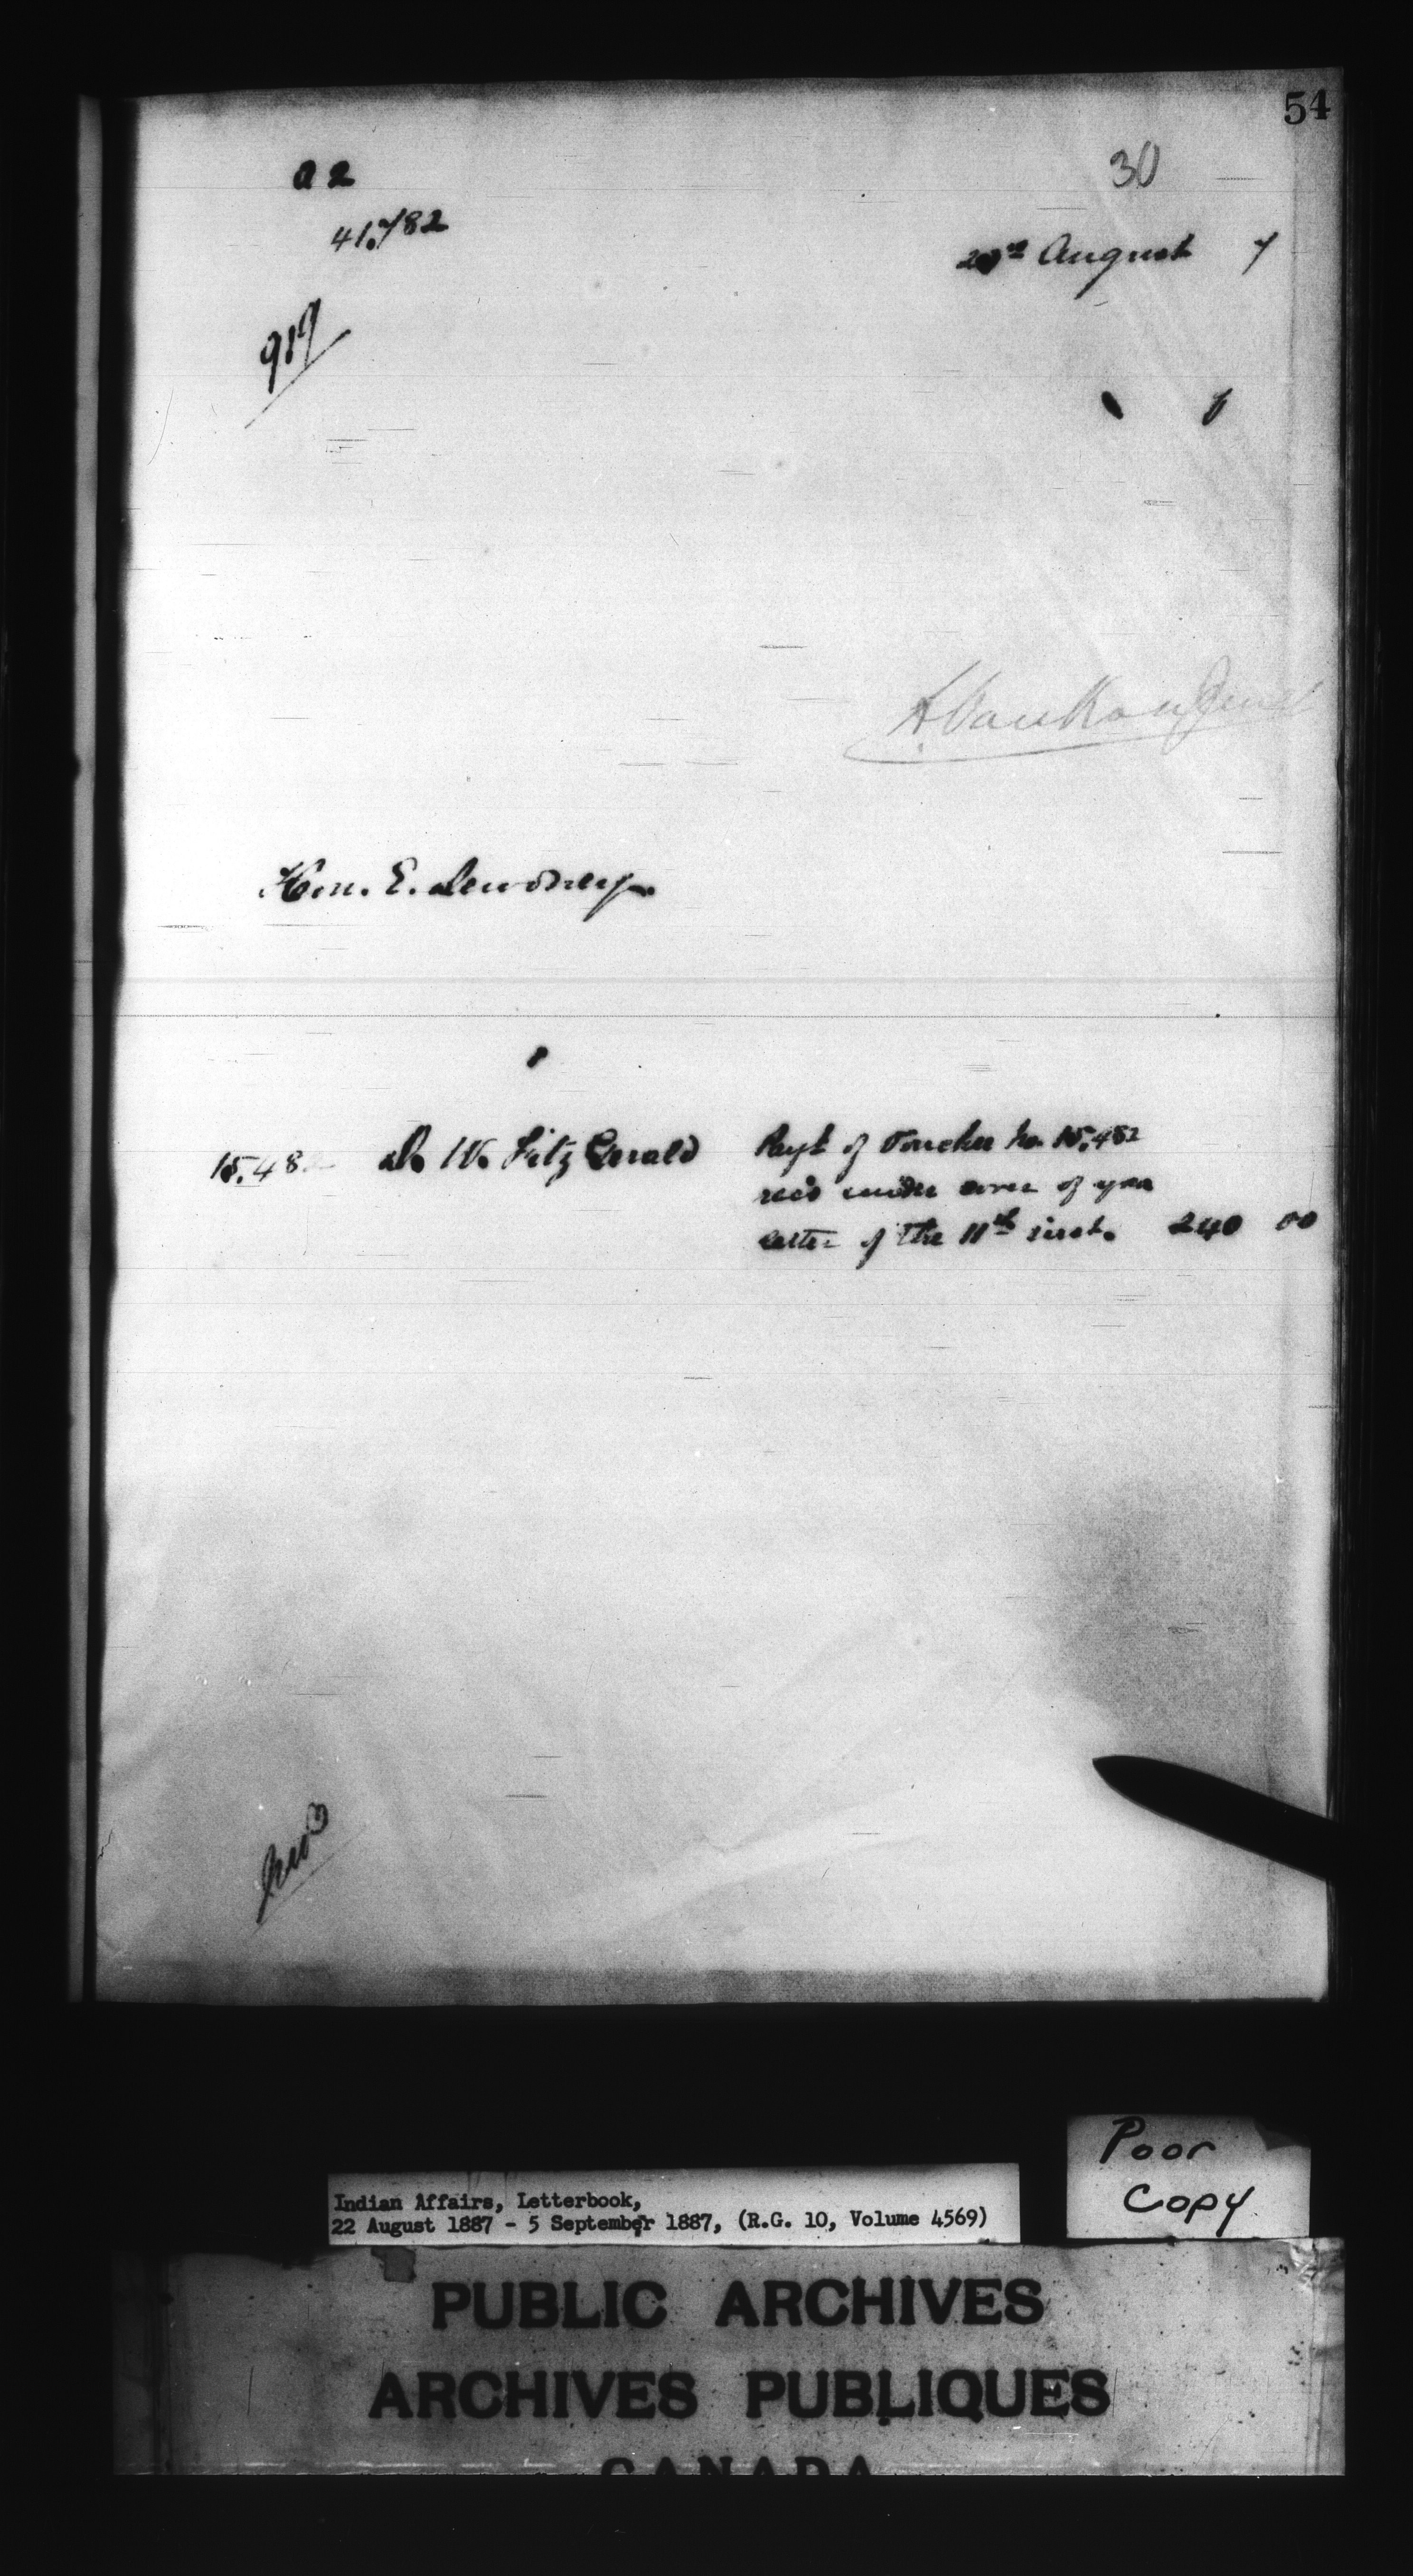 54
a 2
30
41.782
August 7
919
A VanKoughnet
Hon. E. Dewdney
15.482 D. W. FitzGerald Payt of Voucher No. 15,482
rec'd under cover of your
letter of the 11th inst. 240 00
Poor
Copy
Indian Affairs, Letterbook,
22 August 1887 - 5 September 1887, (R.G. 10, Volume 4569)
PUBLIC ARCHIVES
ARCHIVES PUBLIQUES
CANADA